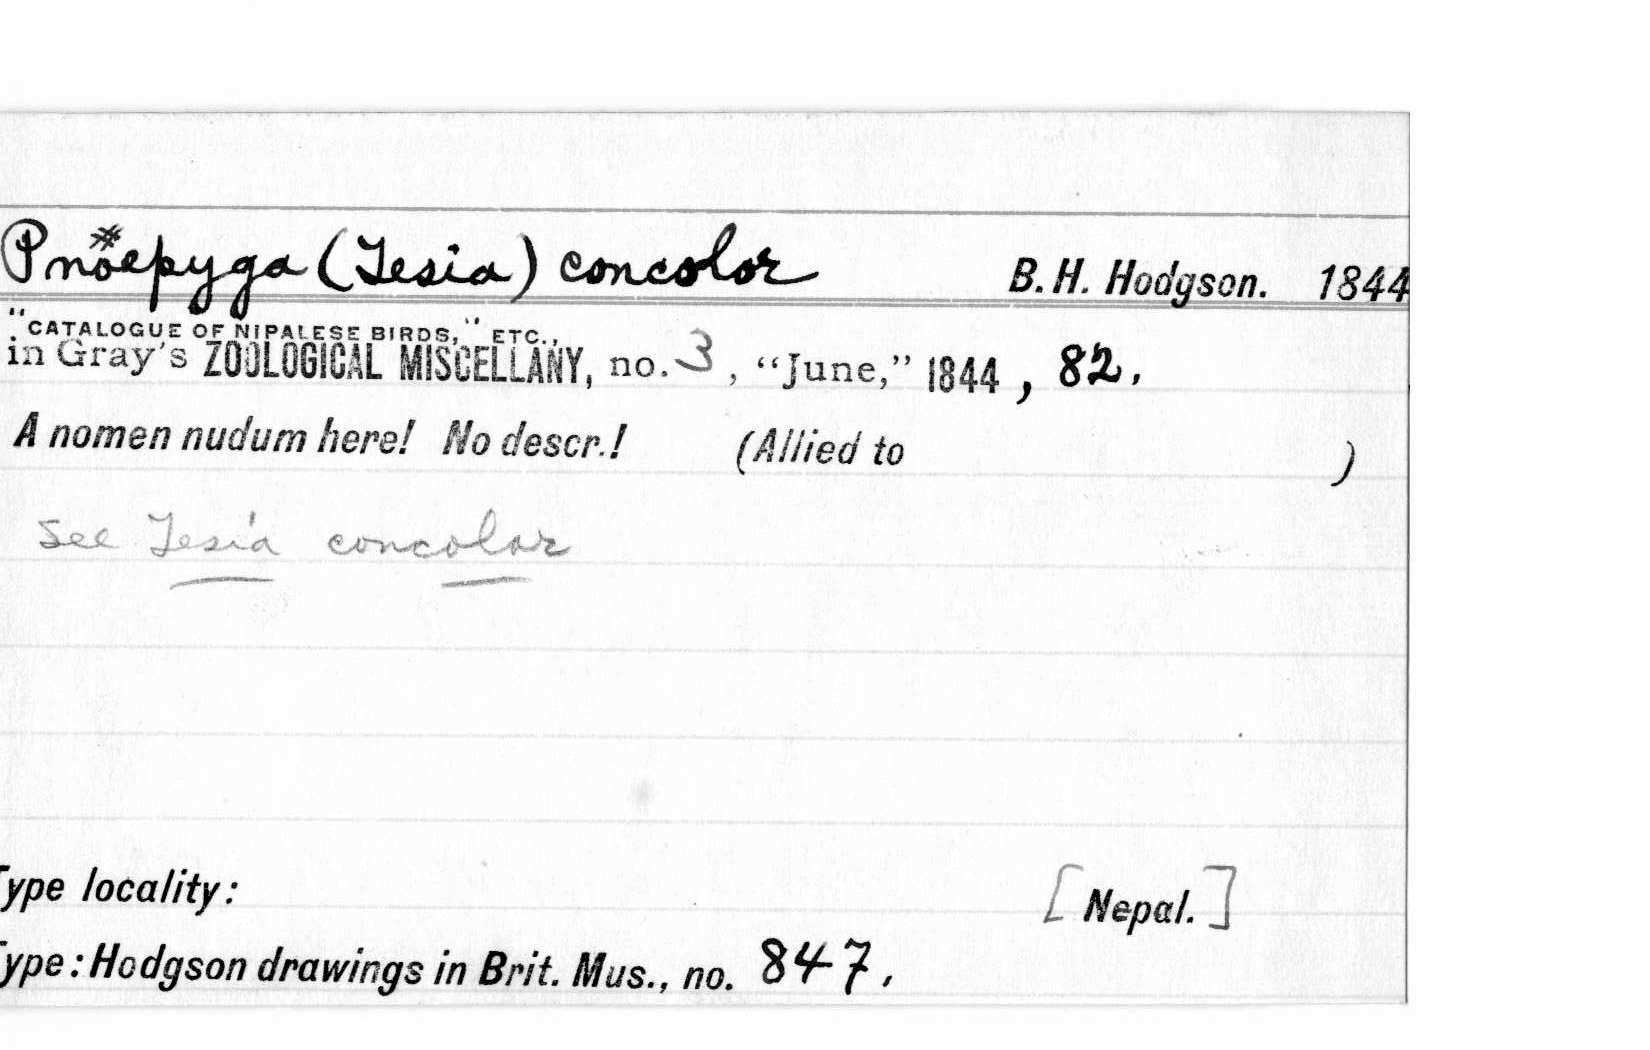 Pnöepyga (Tesia) concolor B. H. Hodgson. 1844
"CATALOGUE OF NIPALESE BIRDS," ETC.,
in Gray's ZOOLOGICAL MISCELLANY, no. 3, "June," 1844, 82.
A nomen nudum here! No descr.! (Allied to )
See Tesia concolor
Type locality: [Nepal.]
Type: Hodgson drawings in Brit. Mus., no. 847.